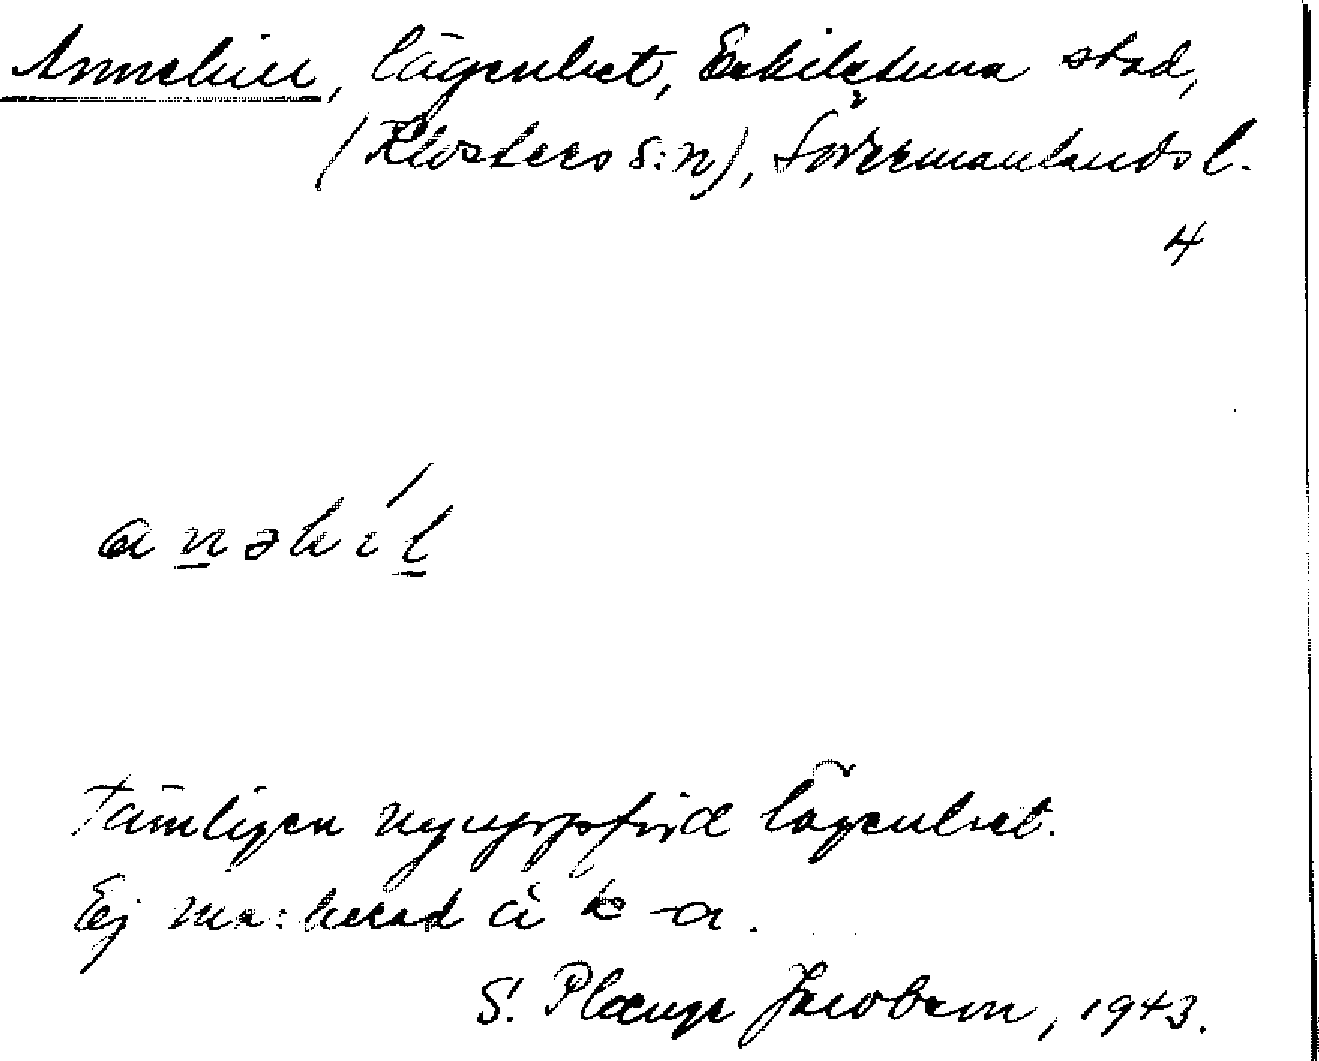 Annehill, lägenhet, Eskilstuna stad,
(Klosters s:n), Södermanlands l.
4
anəhíl
Tämligen nyuppförd lägenhet.
Ej markerad å k-a.
S. Plænge Jacobson, 1943.